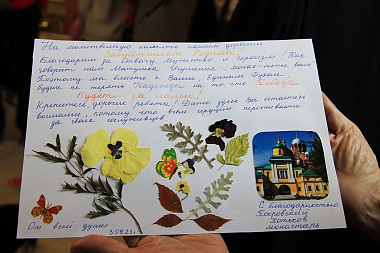 На молитвенную память нашим дорогим
Защитникам Родины!
Благодарим за Отвагу, Мужество и героизм! Как
говорит нам Матушка Игумения: монах-тоже воин
Поэтому мы вместе с Вами, Единым Духом,
будем не терять Надежды на то, что Победа
Будет за нами!
Крепитесь, дорогие ребята! Даже здесь Вы остаётесь
воинами, потому что всем сердцем переживаете
за своих сослуживцев
С благодарностью
Покровский
Хотьков
монастырь
От всей души
3.09.23г.